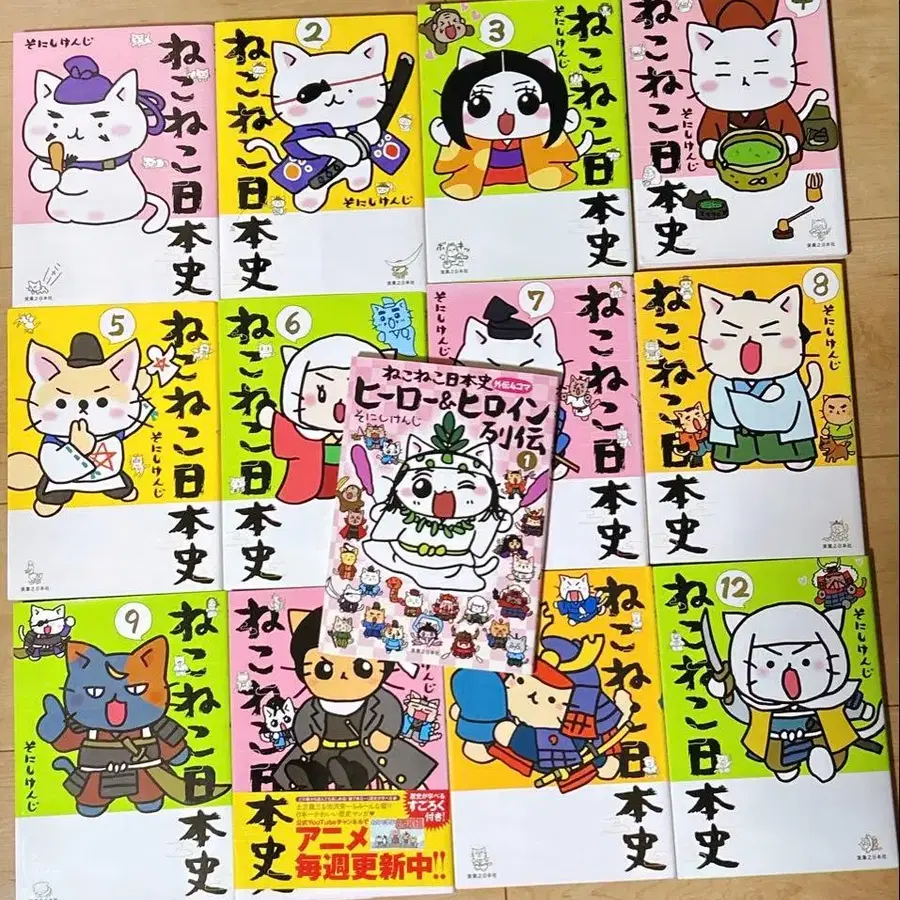 そにしけんじ
ねこねこ日本史
2
ねこねこ日本史
そにしけんじ
3
そにしけんじ
ねこねこ日本史
ポキッ
4
ねこねこ日本史
そにしけんじ
実業之日本社
実業之日本社
実業之日本社
実業之日本社
5
ねこねこ日本史
そにしけんじ
実業之日本社
6
ねこねこ日本史
7
そにしけんじ
ねこねこ日本史
8
ねこねこ日本史
そにしけんじ
実業之日本社
ねこねこ日本史 外伝4コマ
ヒーロー&ヒロイン
列伝
1
そにしけんじ
実業之日本社
9
ねこねこ日本史
そにしけんじ
ねこねこ日本史
けんじ
歴史が学べる
すごろく
付き!
公式YouTubeチャンネルで
アニメ
毎週更新中!!
ねこねこ日本史
実業之日本社
12
ねこねこ日本史
そにしけんじ
実業之日本社